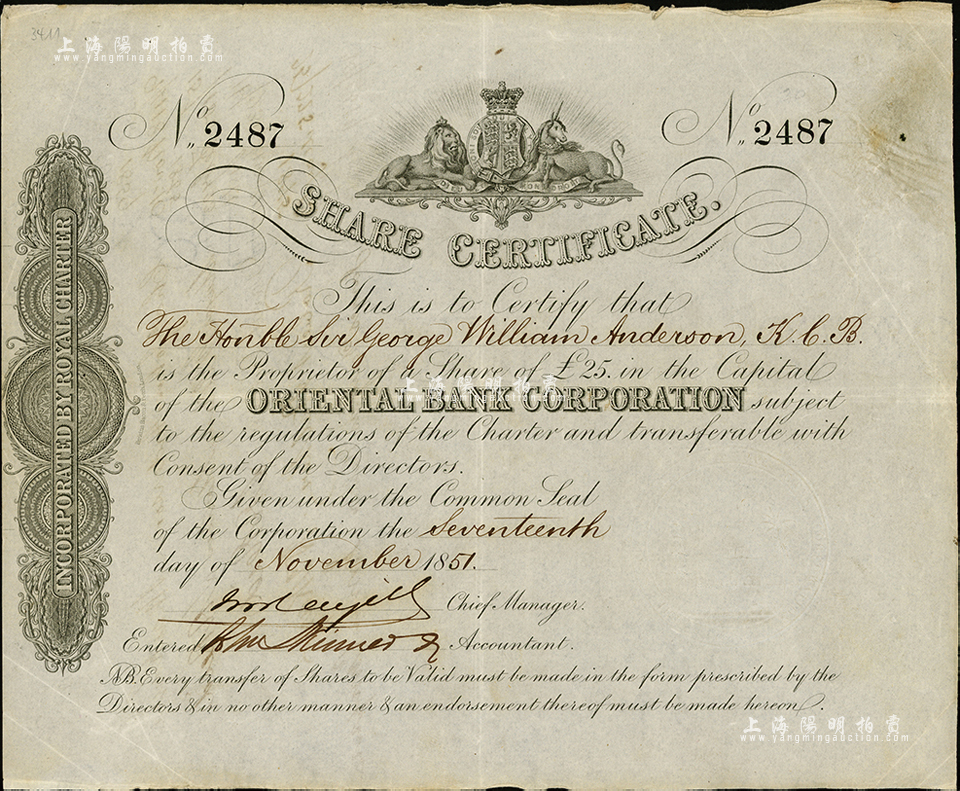 3411
上海陽明拍賣
www.yangmingauction.com
No. 2487
No. 2487
DIEU ET MON DROIT
SHARE CERTIFICATE.
INCORPORATED BY ROYAL CHARTER
This is to Certify that
The Honble Sir George William Anderson, K. C. B.
is the Proprietor of a Share of £25. in the Capital
上海陽明拍賣
www.yangmingauction.com
of the ORIENTAL BANK CORPORATION subject
to the regulations of the Charter and transferable with
Consent of the Directors.
Given under the Common Seal
of the Corporation the Seventeenth
day of November 1851.
Chief Manager.
Entered Skinner Accountant.
NB. Every transfer of Shares to be Valid must be made in the form prescribed by the
Directors & in no other manner & an endorsement thereof must be made hereon.
上海陽明拍賣
www.yangmingauction.com